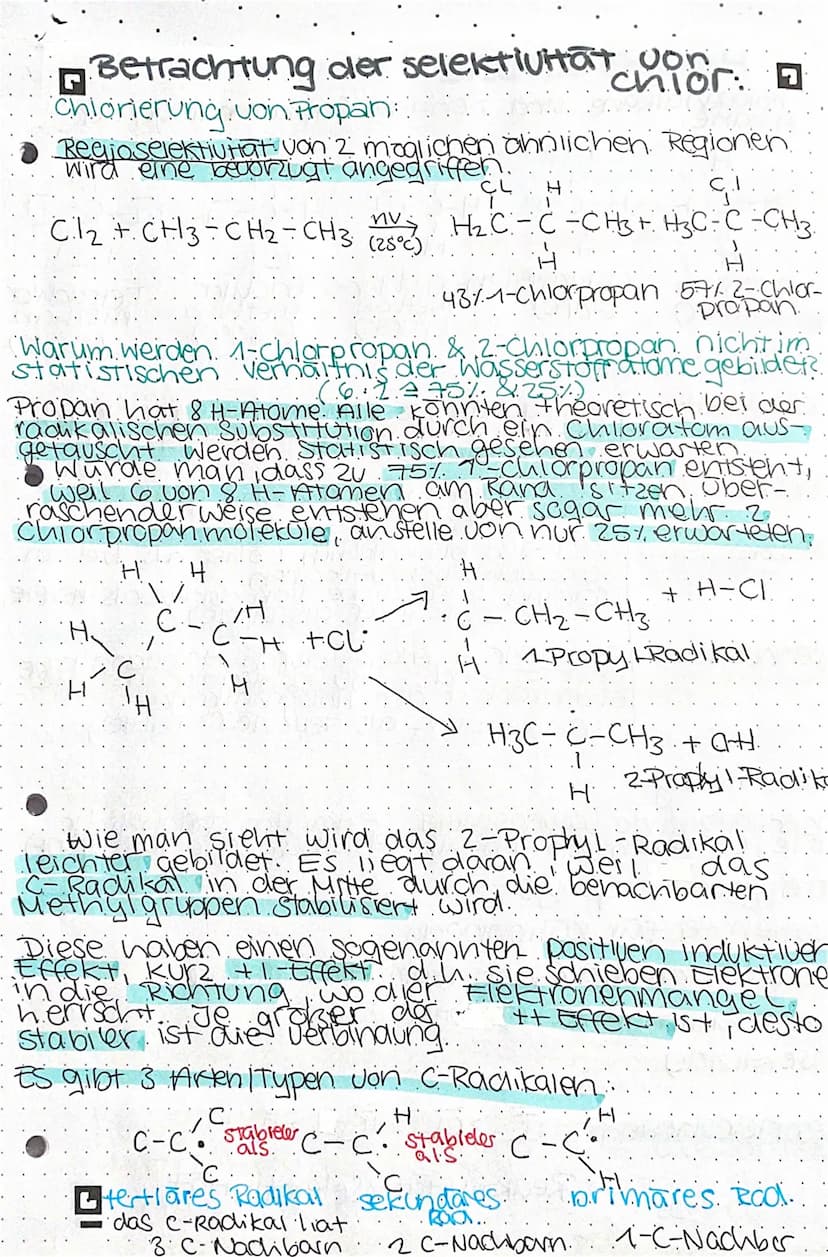 Betrachtung der selektivität von
chlor:
Chlorierung von Propan:
Regioselektivität von 2 möglichen ähnlichen Regionen
wird eine bevorzugt angegriffen.
CL H Cl
Cl2 + CH3-CH2-CH3 hv (25°C) H2C-C-CH3 + H3C-C-CH3
H H
43% 1-Chlorpropan 57% 2-Chlor-
propan
Warum werden 1-chlorpropan & 2-Chlorpropan nicht im
statistischen Verhältnis der Wasserstoffatome gebildet?
(6:2 ≙ 75% & 25%)
Propan hat 8 H-Atome. Alle könnten theoretisch bei der
radikalischen Substitution durch ein Chloratom aus-
getauscht werden. Statistisch gesehen erwarten
würde man, dass zu 75% 1-chlorpropan entsteht,
weil 6 von 8 H-Atomen am Rand sitzen. Über-
raschenderweise entstehen aber sogar mehr 2
Chlorpropanmoleküle, anstelle von nur 25% erwarteten.
H H H
C C-H +Cl· ·C-CH2-CH3 + H-Cl
H H
H C H H 1-Propyl-Radikal
H
H3C-C-CH3 + Cl-H
H 2-Prophyl-Radik
Wie man sieht wird das 2-Prophyl-Radikal
leichter gebildet. Es liegt daran, weil das
C-Radikal in der Mitte durch die benachbarten
Methylgruppen stabilisiert wird.
Diese haben einen sogenannten positiven induktiven
Effekt, kurz +I-Effekt d.h. sie schieben Elektrone
in die Richtung, wo der Elektronenmangel
herrscht. Je größer der +I Effekt ist, desto
stabiler ist die Verbindung.
Es gibt 3 Arten/Typen von C-Radikalen:
C H H
C-C· stabieler als C-C· stabieler als C-C·
C C H
tertiäres Radikal sekundäres Rad. primäres Rad.
das C-Radikal hat
3 C-Nachbarn 2 C-Nachbarn 1-C-Nachber